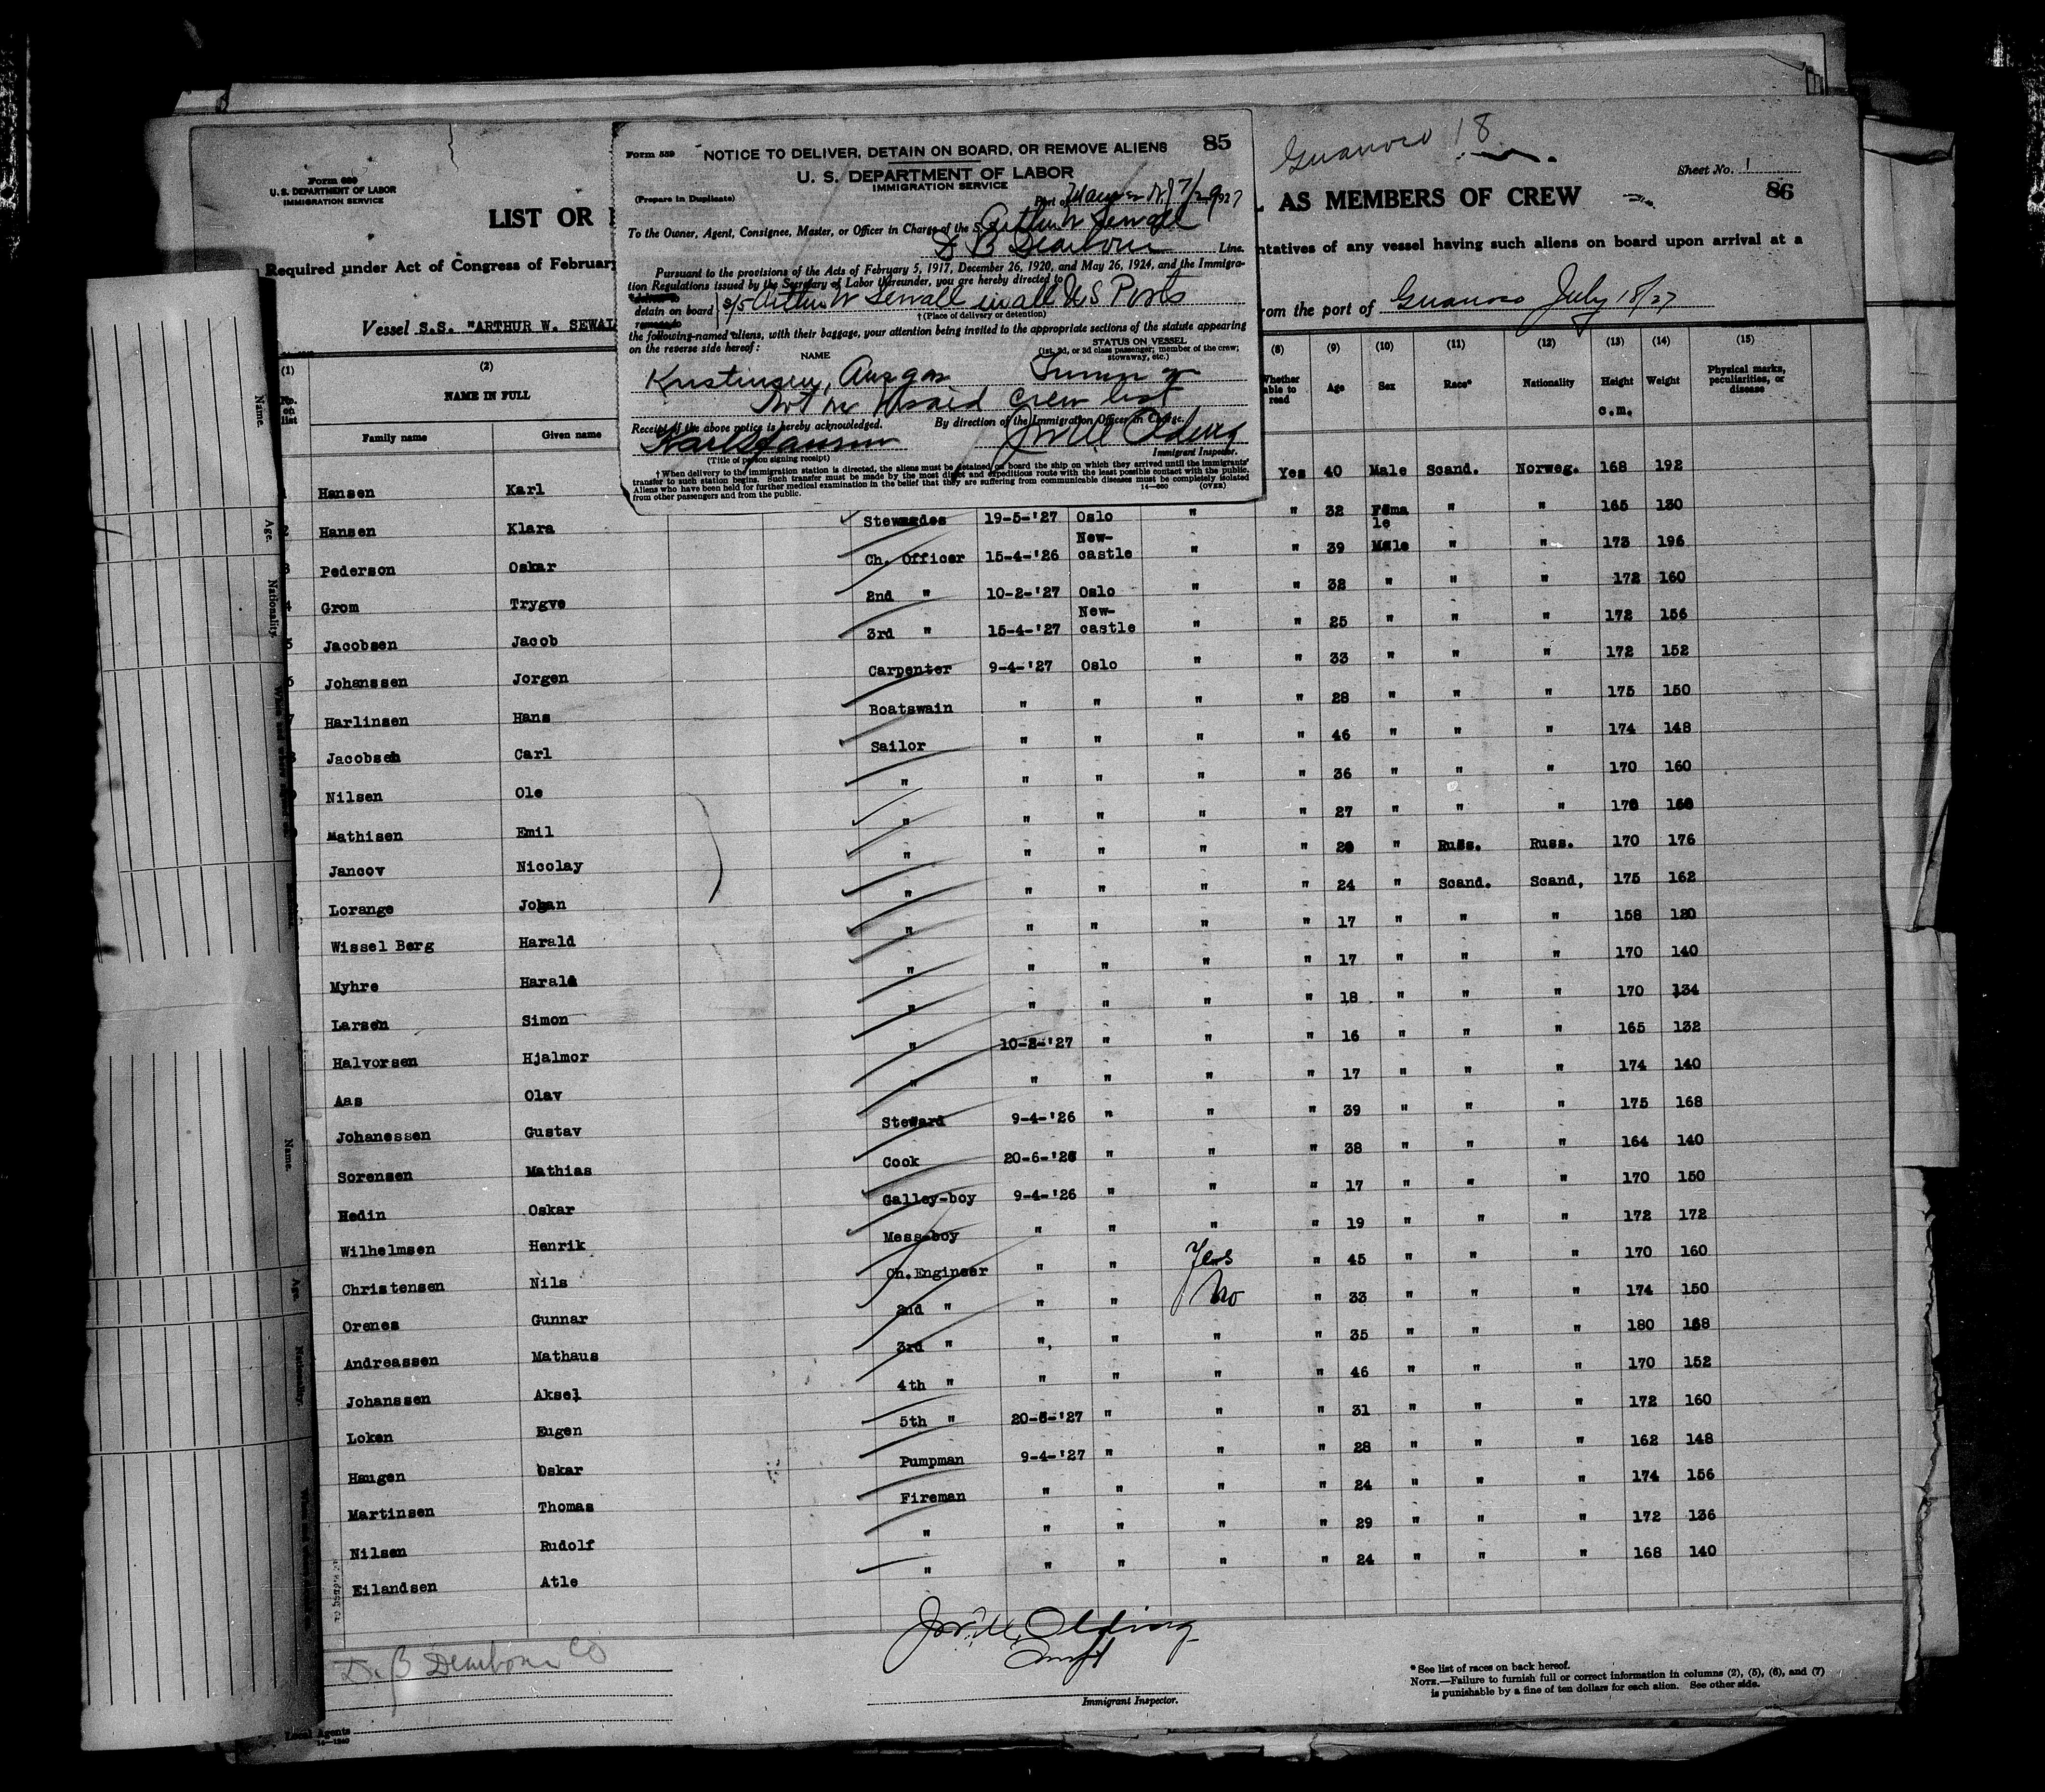 Form 559 NOTICE TO DELIVER, DETAIN ON BOARD, OR REMOVE ALIENS 85
U. S. DEPARTMENT OF LABOR
IMMIGRATION SERVICE
(Prepare in Duplicate) Port of 7/29 1927
To the Owner, Agent, Consignee, Master, or Officer in Charge of the S. Arthur W Sewall
D B Dearborn Line.
Pursuant to the provisions of the Acts of February 5, 1917, December 26, 1920, and May 26, 1924, and the Immigra-
tion Regulations issued by the Secretary of Labor thereunder, you are hereby directed to
detain on board s/s Arthur W Sewall in all U S Ports
† (Place of delivery or detention)
the following-named aliens, with their baggage, your attention being invited to the appropriate sections of the statute appearing
on the reverse side hereof:
NAME STATUS ON VESSEL
(1st, 2d, or 3d class passenger; member of the crew;
stowaway, etc.)
Kristensen, Ansgar
Not on visaed crew list
Receipt of the above notice is hereby acknowledged. By direction of the Immigration Officer in Charge.
Karl Hansen Olding
(Title of person signing receipt) Immigrant Inspector.
† When delivery to the immigration station is directed, the aliens must be detained on board the ship on which they arrived until the immigrants'
transfer to such station begins. Such transfer must be made by the most direct and expeditious route with the least possible contact with the public.
Aliens who have been held for further medical examination in the belief that they are suffering from communicable diseases must be completely isolated
from other passengers and from the public. 14—660 (OVER)
18
Sheet No. 1
86
Form 689
U. S. DEPARTMENT OF LABOR
IMMIGRATION SERVICE
LIST OR AS MEMBERS OF CREW
Required under Act of Congress of February ntatives of any vessel having such aliens on board upon arrival at a
Vessel S.S. "ARTHUR W. SEWAL rom the port of July 18/27
(1) (2) (8) (9) (10) (11) (12) (13) (14) (15)
No. on list NAME IN FULL Whether able to read Age Sex Race* Nationality Height c.m. Weight Physical marks, peculiarities, or disease
Family name Given name
1 Hansen Karl Yes 40 Male Scand. Norweg. 168 192
2 Hansen Klara Stewardes 19-5-'27 Oslo " " 32 Female " " 165 130
3 Pederson Oskar Ch. Officer 15-4-'26 New-castle " " 39 Male " " 173 196
4 Grom Trygve 2nd " 10-2-'27 Oslo " " 32 " " " 172 160
5 Jacobsen Jacob 3rd " 15-4-'27 New-castle " " 25 " " " 172 156
6 Johanssen Jorgen Carpenter 9-4-'27 Oslo " " 33 " " " 172 152
7 Harlinsen Hans Boatswain " " " " 28 " " " 175 150
8 Jacobsen Carl Sailor " " " " 46 " " " 174 148
9 Nilsen Ole " " " " " 36 " " " 170 160
Mathisen Emil " " " " " 27 " " "
Jancov Nicolay " " " " " " Russ. Russ. 170 176
Lorange Johan " " " " " 24 " Scand. Scand. 175 162
Wissel Berg Harald " " " " " 17 " " " 158 120
Myhre Harald " " " " " 17 " " " 170 140
Larsen Simon " " " " " 18 " " " 170 134
Halvorsen Hjalmor " 10-2-'27 " " " 16 " " " 165 132
Aas Olav " " " " " 17 " " " 174 140
Johanessen Gustav Steward 9-4-'26 " " " 39 " " " 175 168
Sorensen Mathias Cook 20-6-'26 " " " 38 " " " 164 140
Hedin Oskar Galley-boy 9-4-'26 " " " 17 " " " 170 150
Wilhelmsen Henrik Mess-boy " " " " 19 " " " 172 172
Christensen Nils Ch. Engineer " " Yes " 45 " " " 170 160
Orenes Gunnar 2nd " " " No " 33 " " " 174 150
Andreassen Mathaus 3rd " " " " " 35 " " " 180 168
Johanssen Aksel 4th " " " " " 46 " " " 170 152
Loken Eugen 5th " 20-6-'27 " " " 31 " " " 172 160
Haugen Oskar Pumpman 9-4-'27 " " " 28 " " " 162 148
Martinsen Thomas Fireman " " " " 24 " " " 174 156
Nilsen Rudolf " " " " " 29 " " " 172 136
Eilandsen Atle " " " " " 24 " " " 168 140
D. B Dearborn Co
Olding
Immigrant Inspector.
Local Agents
14—1240
* See list of races on back hereof.
NOTE.—Failure to furnish full or correct information in columns (2), (5), (6), and (7)
is punishable by a fine of ten dollars for each alien. See other side.
Name.
Age.
Nationality.
Name.
Age.
Nationality.